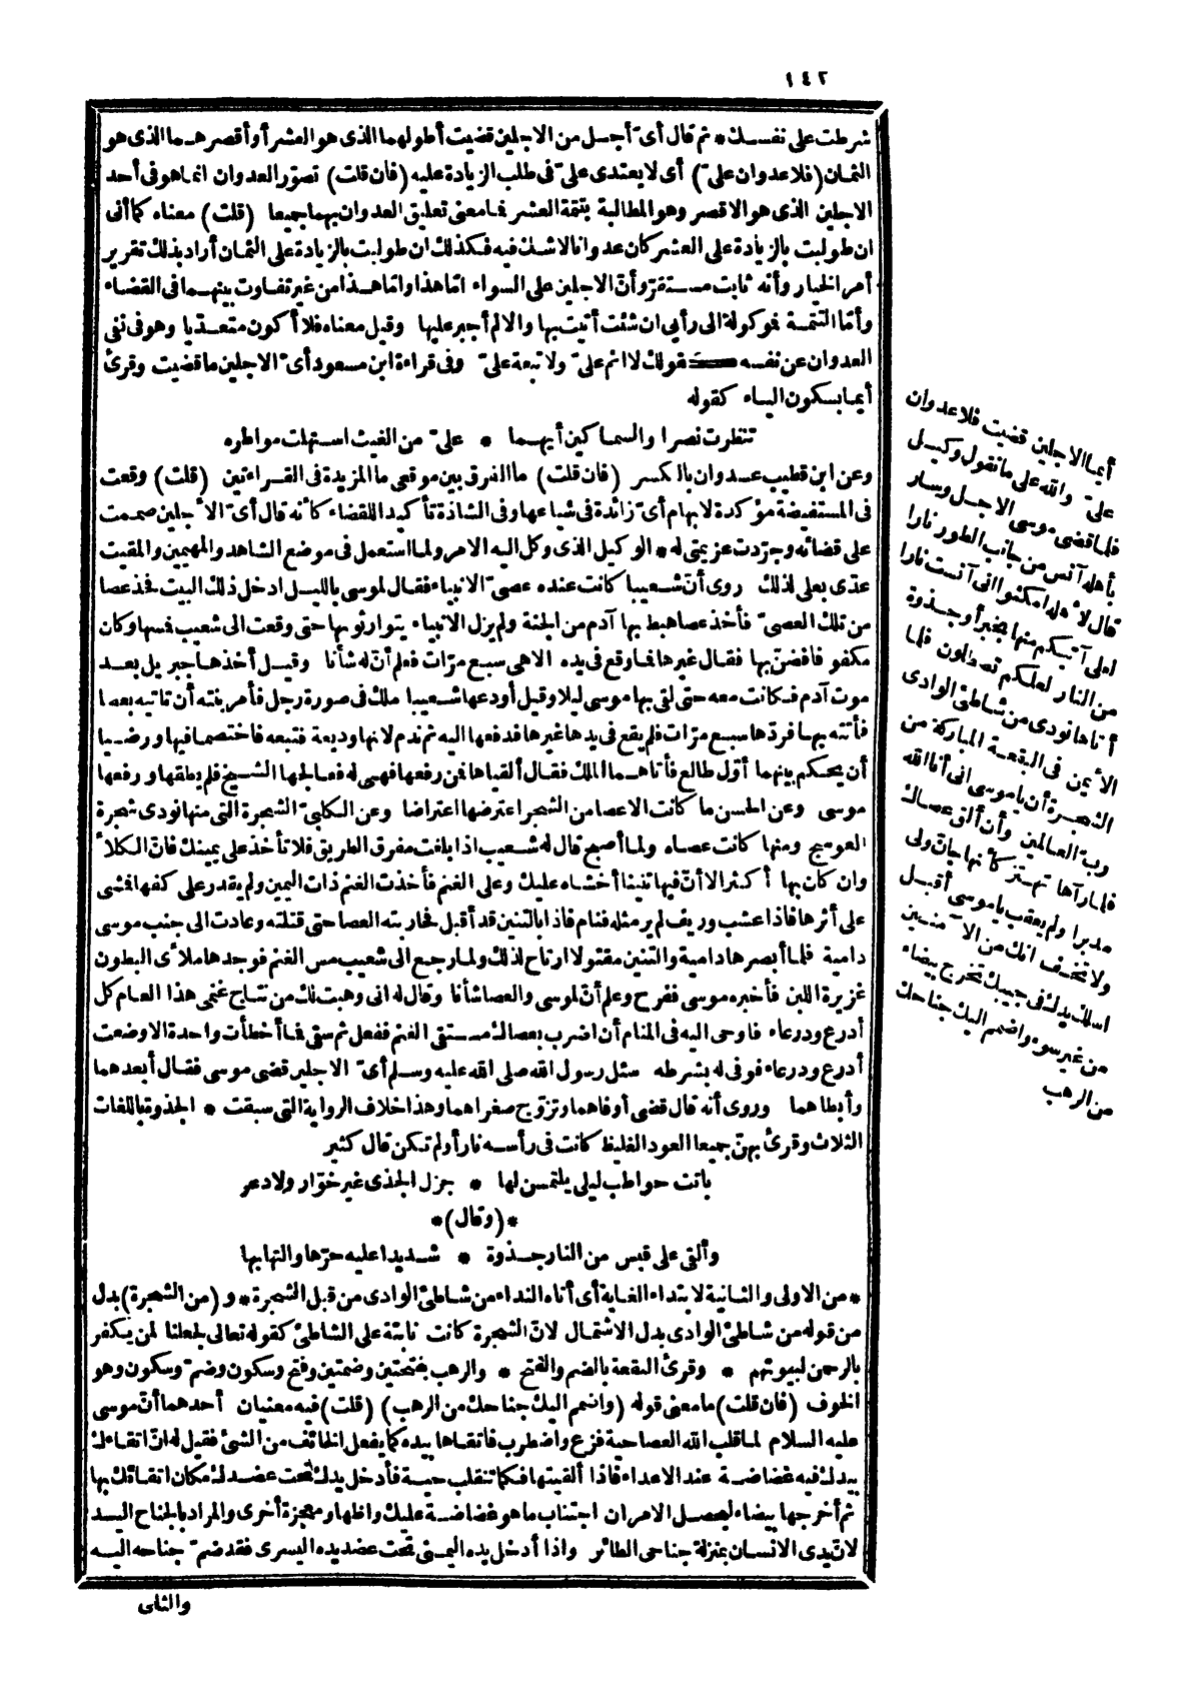 ١٤٢
شرطت على نفسك * ثم قال أىّ أجل من الاجلين قضيت أطولهما الذى هو العشر أو أقصرهما الذى هو
الثمان (فلا عدوان علىّ) أى لا يعتدى علىّ فى طلب الزيادة عليه (فان قلت) تصوّر العدوان انما هو فى أحد
الاجلين الذى هو الاقصر وهو المطالبة بتتمة العشر فما معنى تعليق العدوان بهما جميعا (قلت) معناه كما أنى
ان طولبت بالزيادة على العشر كان عدوانا لا شك فيه فكذلك ان طولبت بالزيادة على الثمان أراد بذلك تقرير
أمر الخيار وأنه ثابت مستقرّ وأنّ الاجلين على السواء امّا هذا وامّا هذا من غير تفاوت بينهما فى القضاء
وأمّا التتمة فموكولة الى رأيى ان شئت أتيت بها والا لم أجبر عليها وقيل معناه فلا أكون متعدّيا وهو فى نفى
العدوان عن نفسه كقولك لا اثم علىّ ولا تبعة علىّ وفى قراءة ابن مسعود أىّ الاجلين ما قضيت وقرئ
أيما بسكون الياء كقوله
تنظرت نصرا والسماكين أيهما * علىّ من الغيث استهلت مواطره
وعن ابن قطيب عدوان بالكسر (فان قلت) ما الفرق بين موقعى ما المزيدة فى القراءتين (قلت) وقعت
فى المستفيضة مؤكدة لابهام أىّ زائدة فى شياعها وفى الشاذة تأكيدا للقضاء كأنه قال أىّ الأجلين صممت
على قضائه وجرّدت عزيمتى له * الوكيل الذى وكل اليه الامر ولما استعمل فى موضع الشاهد والمهيمن والمقيت
عدّى بعلى لذلك روى أنّ شعيبا كانت عنده عصىّ الانبياء فقال لموسى بالليل ادخل ذلك البيت فخذ عصا
من تلك العصىّ فأخذ عصا هبط بها آدم من الجنة ولم يزل الانبياء يتوارثونها حتى وقعت الى شعيب فمسها وكان
مكفوفا فضنّ بها فقال غيرها فما وقع فى يده الا هى سبع مرّات فعلم أنّ له شأنا وقيل أخذها جبريل بعد
موت آدم فكانت معه حتى لقى بها موسى ليلا وقيل أودعها شعيبا ملك فى صورة رجل فأمر بنته أن تاتيه بعصا
فأتته بها فردّها سبع مرّات فلم يقع فى يدها غيرها فدفعها اليه ثم ندم لانها وديعة فتبعه فاختصما فيها ورضيا
أن يحكم بينهما أوّل طالع فأتاهما الملك فقال ألقياها فمن رفعها فهى له فعالجها الشيخ فلم يطقها ورفعها
موسى وعن الحسن ما كانت الا عصا من الشجر اعترضها اعتراضا وعن الكلبىّ الشجرة التى منها نودى شجرة
العوسج ومنها كانت عصاه ولما أصبح قال له شعيب اذا بلغت مفرق الطريق فلا تأخذ على يمينك فانّ الكلأ
وان كان بها أكثر الا أنّ فيها تنينا أخشاه عليك وعلى الغنم فأخذت الغنم ذات اليمين ولم يقدر على كفها فمشى
على أثرها فاذا عشب وريف لم ير مثله فنام فاذا بالتنين قد أقبل فحاربته العصا حتى قتلته وعادت الى جنب موسى
دامية فلما أبصرها دامية والتنين مقتولا ارتاح لذلك ولما رجع الى شعيب مس الغنم فوجدها ملأى البطون
غزيرة اللبن فأخبره موسى ففرح وعلم أنّ لموسى والعصا شأنا وقال له انى وهبت لك من نتاج غنمى هذا العام كل
أدرع ودرعاء فاوحى اليه فى المنام أن اضرب بعصاك مستقى الغنم ففعل ثم سقى فما أخطأت واحدة الا وضعت
أدرع ودرعاء فوفى له بشرطه سئل رسول الله صلى الله عليه وسلم أىّ الاجلين قضى موسى فقال أبعدهما
وأبطأهما وروى أنه قال قضى أوفاهما وتزوّج صغراهما وهذا خلاف الرواية التى سبقت * الجذوة باللغات
الثلاث وقرئ بهنّ جميعا العود الغليظ كانت فى رأسه نار أو لم تكن قال كثير
باتت حواطب ليلى يلتمسن لها * جزل الجذى غير خوّار ولا دعر
*(وقال)*
وألقى على قبس من النار جذوة * شديدا عليه حرّها والتهابها
* من الاولى والثانية لابتداء الغاية أى أتاه النداء من شاطئ الوادى من قبل الشجرة * و (من الشجرة) بدل
من قوله من شاطئ الوادى بدل الاشتمال لانّ الشجرة كانت نابتة على الشاطئ كقوله تعالى لجعلنا لمن يكفر
بالرحمن لبيوتهم * وقرئ البقعة بالضم والفتح * والرهب بفتحتين وضمتين وفتح وسكون وضمّ وسكون وهو
الخوف (فان قلت) ما معنى قوله (واضمم اليك جناحك من الرهب) (قلت) فيه معنيان أحدهما أنّ موسى
عليه السلام لما قلب الله العصا حية فزع واضطرب فاتقاها بيده كما يفعل الخائف من الشئ فقيل له انّ اتقاءك
بيدك فيه غضاضة عند الاعداء فاذا ألقيتها فكما تنقلب حية فأدخل يدك تحت عضدك مكان اتقائك بها
ثم أخرجها بيضاء ليحصل الامران اجتناب ما هو غضاضة عليك واظهار معجزة أخرى والمراد بالجناح اليد
لانّ يدى الانسان بمنزلة جناحى الطائر واذا أدخل يده اليمنى تحت عضد يده اليسرى فقد ضمّ جناحه اليه
والثانى
أيما الاجلين قضيت فلا عدوان
علىّ والله على ما نقول وكيل
فلما قضى موسى الاجل وسار
بأهله آنس من جانب الطور نارا
قال لأهله امكثوا انى آنست نارا
لعلى آتيكم منها بخبر أو جذوة
من النار لعلكم تصطلون فلما
أتاها نودى من شاطئ الوادى
الأيمن فى البقعة المباركة من
الشجرة أن يا موسى انى أنا الله
رب العالمين وأن ألق عصاك
فلما رآها تهتز كأنها جان ولى
مدبرا ولم يعقب يا موسى أقبل
ولا تخف انك من الآمنين
اسلك يدك فى جيبك تخرج بيضاء
من غير سوء واضمم اليك جناحك
من الرهب